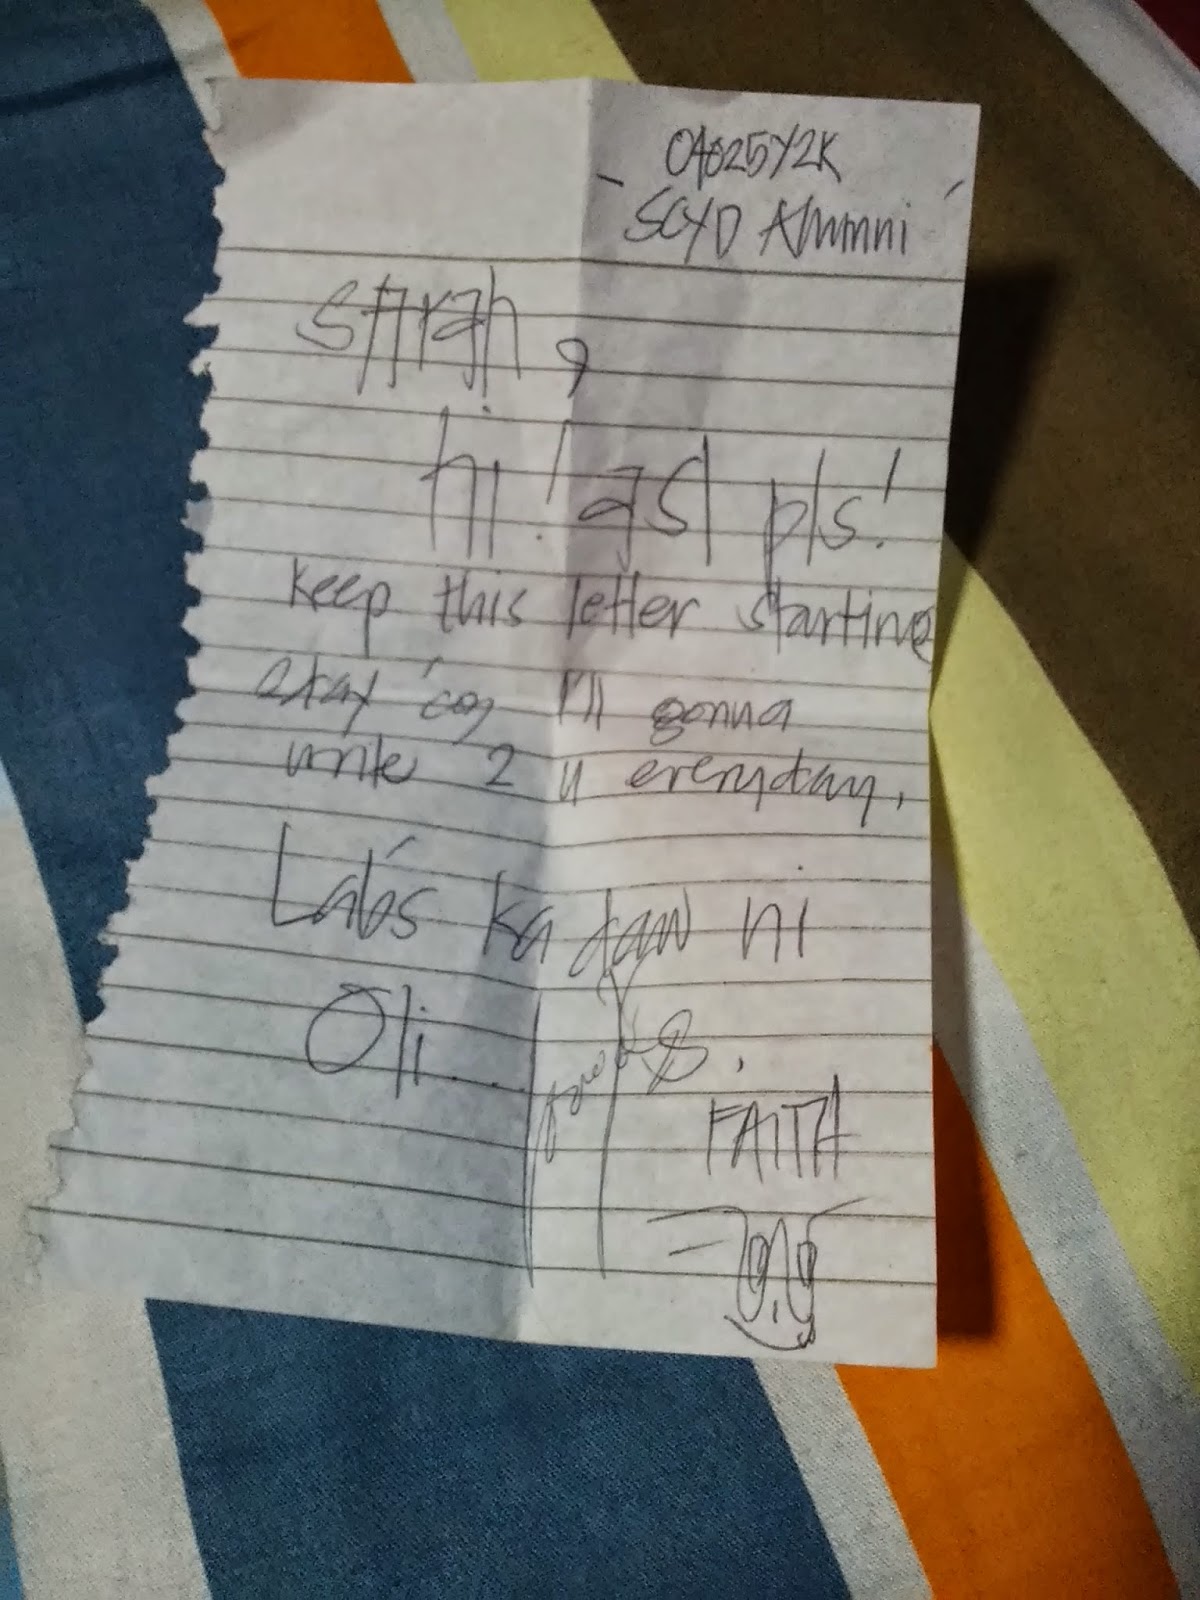 SCYD Alumni
sarah,
hi! asl pls!
keep this letter starting
2day 'coz I'll gonna
write 2 u everyday.
Lab's ka daw ni
Oli...
FAITH